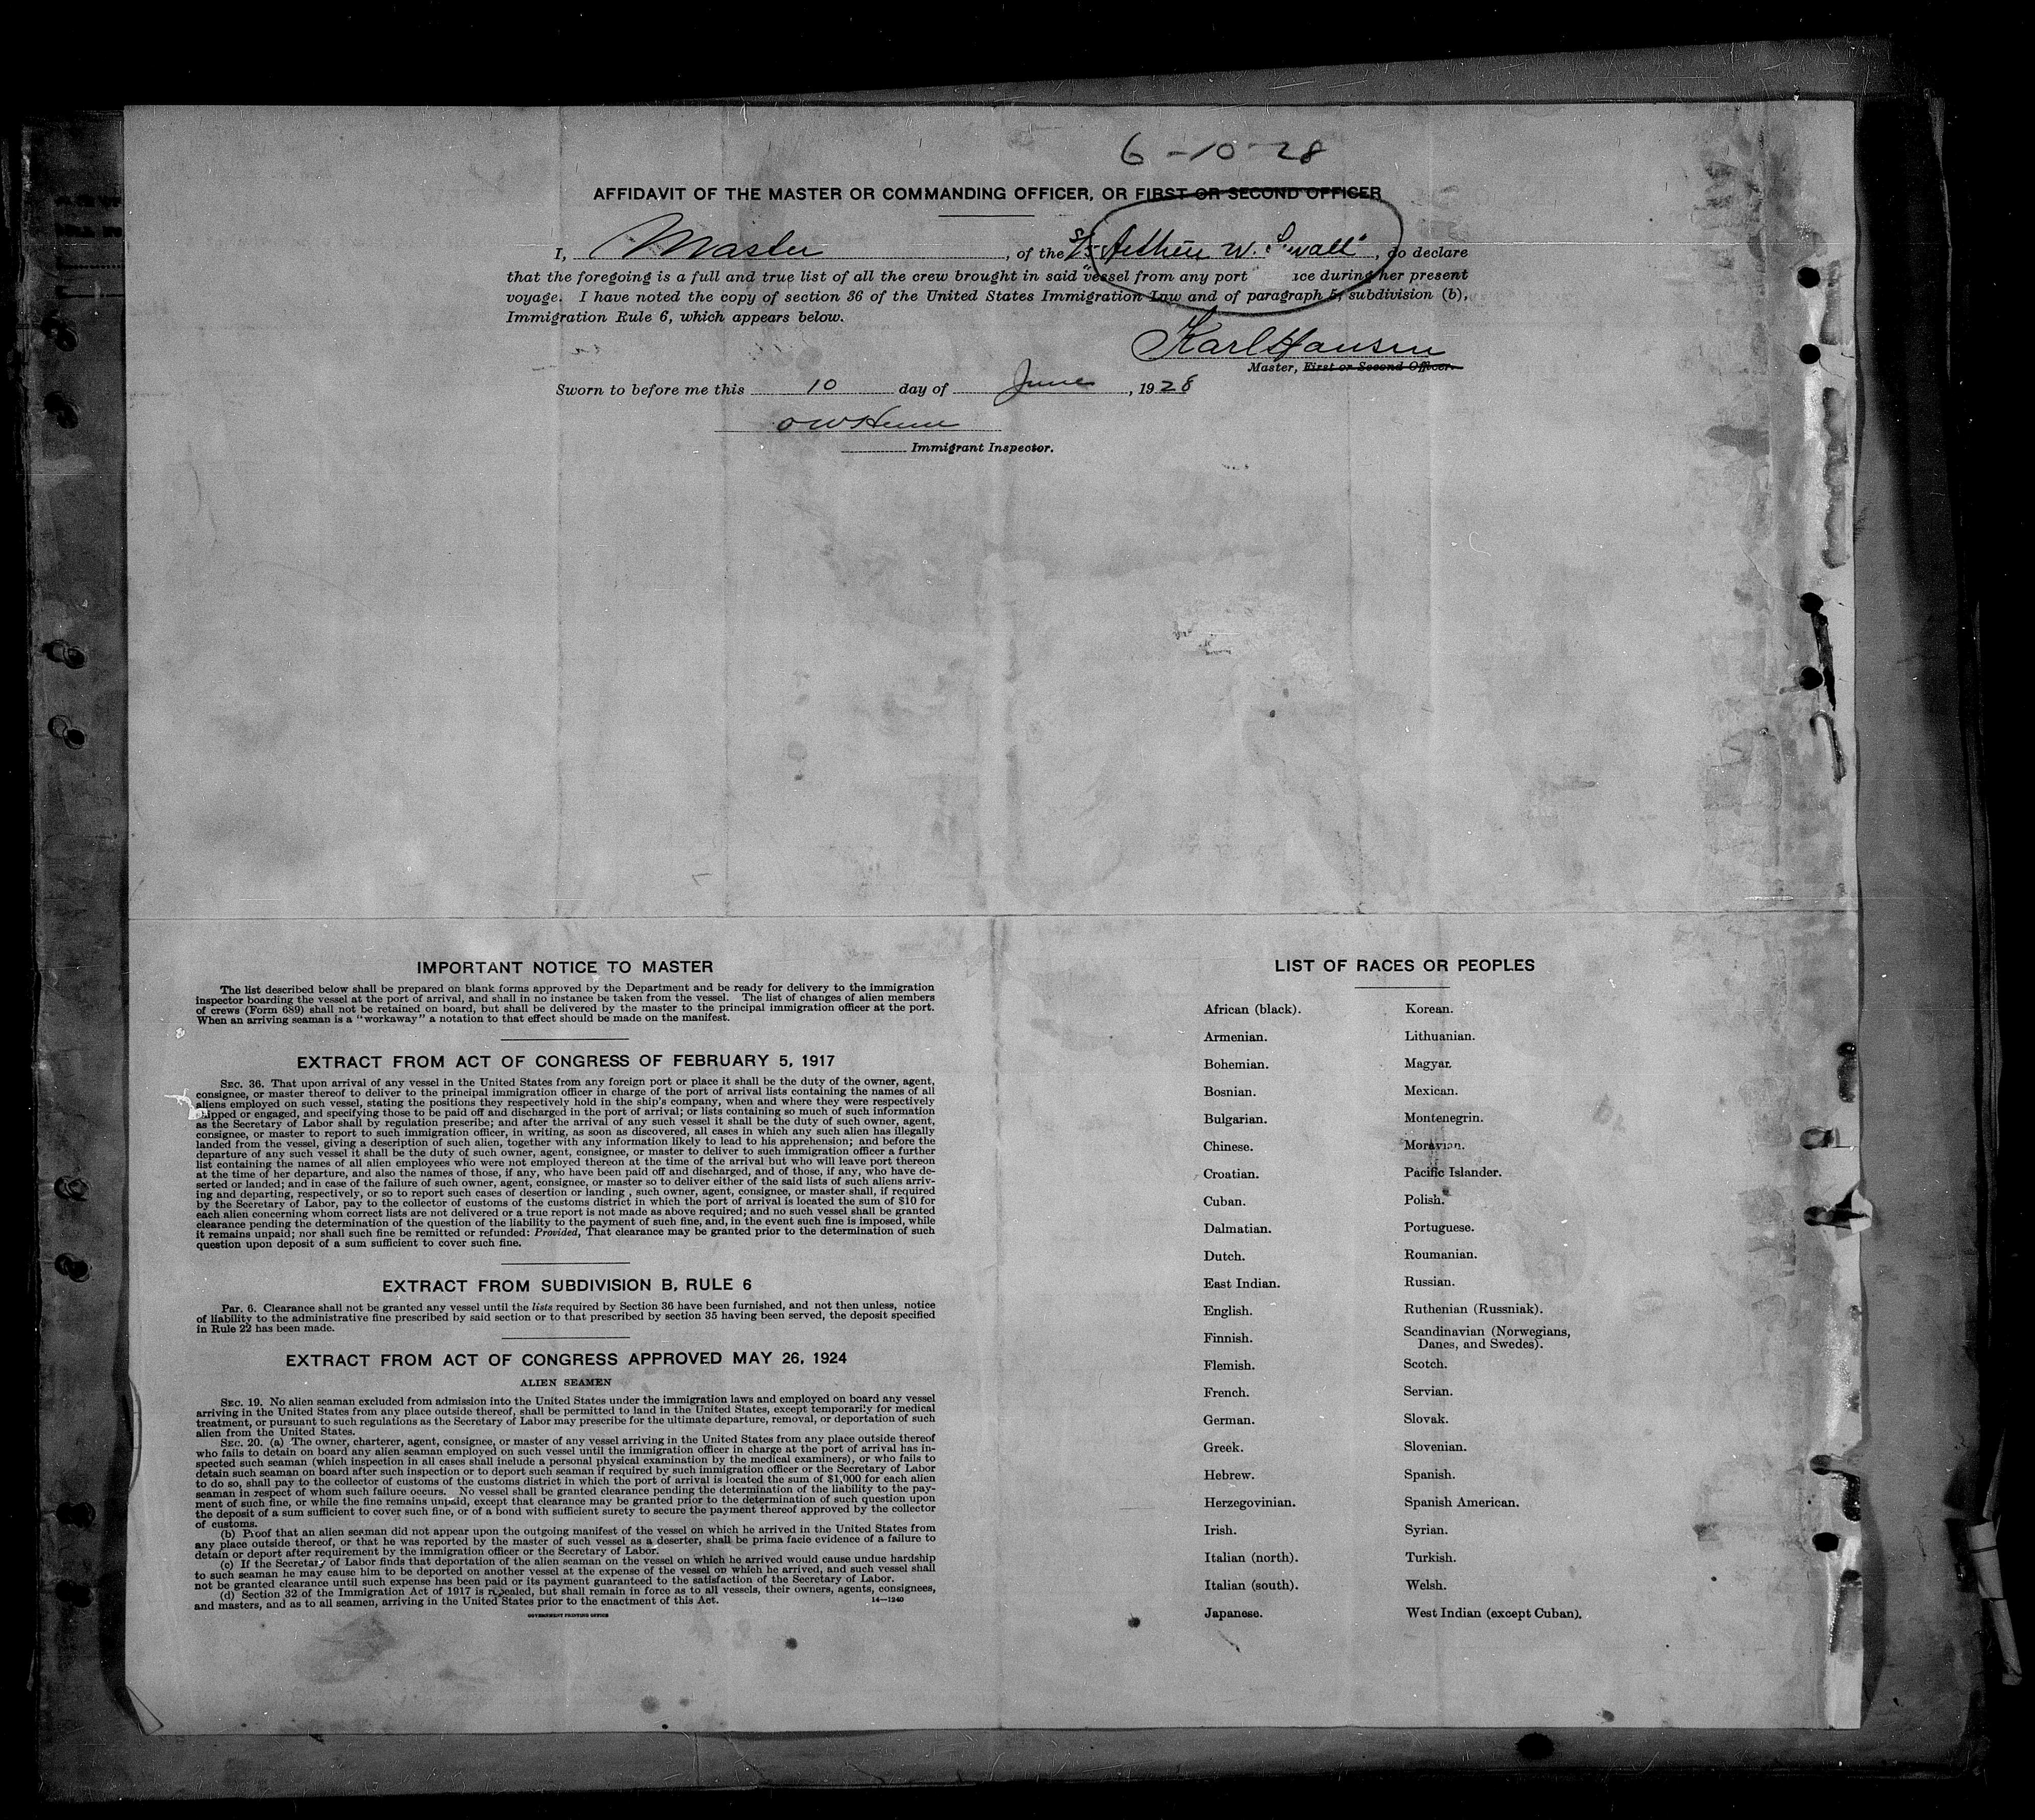 6-10-28
AFFIDAVIT OF THE MASTER OR COMMANDING OFFICER, OR FIRST OR SECOND OFFICER
I, Master, of the S/S "Arthur W. Sewall", do declare
that the foregoing is a full and true list of all the crew brought in said vessel from any port ice during her present
voyage. I have noted the copy of section 36 of the United States Immigration Law and of paragraph 5, subdivision (b),
Immigration Rule 6, which appears below.
Karl Hansen
Master, First or Second Officer.
Sworn to before me this 10 day of June, 1928
Immigrant Inspector.
IMPORTANT NOTICE TO MASTER
The list described below shall be prepared on blank forms approved by the Department and be ready for delivery to the immigration
inspector boarding the vessel at the port of arrival, and shall in no instance be taken from the vessel. The list of changes of alien members
of crews (Form 689) shall not be retained on board, but shall be delivered by the master to the principal immigration officer at the port.
When an arriving seaman is a "workaway" a notation to that effect should be made on the manifest.
EXTRACT FROM ACT OF CONGRESS OF FEBRUARY 5, 1917
SEC. 36. That upon arrival of any vessel in the United States from any foreign port or place it shall be the duty of the owner, agent,
consignee, or master thereof to deliver to the principal immigration officer in charge of the port of arrival lists containing the names of all
aliens employed on such vessel, stating the positions they respectively hold in the ship's company, when and where they were respectively
shipped or engaged, and specifying those to be paid off and discharged in the port of arrival; or lists containing so much of such information
as the Secretary of Labor shall by regulation prescribe; and after the arrival of any such vessel it shall be the duty of such owner, agent,
consignee, or master to report to such immigration officer, in writing, as soon as discovered, all cases in which any such alien has illegally
landed from the vessel, giving a description of such alien, together with any information likely to lead to his apprehension; and before the
departure of any such vessel it shall be the duty of such owner, agent, consignee, or master to deliver to such immigration officer a further
list containing the names of all alien employees who were not employed thereon at the time of the arrival but who will leave port thereon
at the time of her departure, and also the names of those, if any, who have been paid off and discharged, and of those, if any, who have de-
serted or landed; and in case of the failure of such owner, agent, consignee, or master so to deliver either of the said lists of such aliens arriv-
ing and departing, respectively, or so to report such cases of desertion or landing , such owner, agent, consignee, or master shall, if required
by the Secretary of Labor, pay to the collector of customs of the customs district in which the port of arrival is located the sum of $10 for
each alien concerning whom correct lists are not delivered or a true report is not made as above required; and no such vessel shall be granted
clearance pending the determination of the question of the liability to the payment of such fine, and, in the event such fine is imposed, while
it remains unpaid; nor shall such fine be remitted or refunded: Provided, That clearance may be granted prior to the determination of such
question upon deposit of a sum sufficient to cover such fine.
EXTRACT FROM SUBDIVISION B, RULE 6
Par. 6. Clearance shall not be granted any vessel until the lists required by Section 36 have been furnished, and not then unless, notice
of liability to the administrative fine prescribed by said section or to that prescribed by section 35 having been served, the deposit specified
in Rule 22 has been made.
EXTRACT FROM ACT OF CONGRESS APPROVED MAY 26, 1924
ALIEN SEAMEN
SEC. 19. No alien seaman excluded from admission into the United States under the immigration laws and employed on board any vessel
arriving in the United States from any place outside thereof, shall be permitted to land in the United States, except temporarily for medical
treatment, or pursuant to such regulations as the Secretary of Labor may prescribe for the ultimate departure, removal, or deportation of such
alien from the United States.
SEC. 20. (a) The owner, charterer, agent, consignee, or master of any vessel arriving in the United States from any place outside thereof
who fails to detain on board any alien seaman employed on such vessel until the immigration officer in charge at the port of arrival has in-
spected such seaman (which inspection in all cases shall include a personal physical examination by the medical examiners), or who fails to
detain such seaman on board after such inspection or to deport such seaman if required by such immigration officer or the Secretary of Labor
to do so, shall pay to the collector of customs of the customs district in which the port of arrival is located the sum of $1,000 for each alien
seaman in respect of whom such failure occurs. No vessel shall be granted clearance pending the determination of the liability to the pay-
ment of such fine, or while the fine remains unpaid, except that clearance may be granted prior to the determination of such question upon
the deposit of a sum sufficient to cover such fine, or of a bond with sufficient surety to secure the payment thereof approved by the collector
of customs.
(b) Proof that an alien seaman did not appear upon the outgoing manifest of the vessel on which he arrived in the United States from
any place outside thereof, or that he was reported by the master of such vessel as a deserter, shall be prima facie evidence of a failure to
detain or deport after requirement by the immigration officer or the Secretary of Labor.
(c) If the Secretary of Labor finds that deportation of the alien seaman on the vessel on which he arrived would cause undue hardship
to such seaman he may cause him to be deported on another vessel at the expense of the vessel on which he arrived, and such vessel shall
not be granted clearance until such expense has been paid or its payment guaranteed to the satisfaction of the Secretary of Labor.
(d) Section 32 of the Immigration Act of 1917 is repealed, but shall remain in force as to all vessels, their owners, agents, consignees,
and masters, and as to all seamen, arriving in the United States prior to the enactment of this Act.
14—1240
GOVERNMENT PRINTING OFFICE
LIST OF RACES OR PEOPLES
African (black).
Armenian.
Bohemian.
Bosnian.
Bulgarian.
Chinese.
Croatian.
Cuban.
Dalmatian.
Dutch.
East Indian.
English.
Finnish.
Flemish.
French.
German.
Greek.
Hebrew.
Herzegovinian.
Irish.
Italian (north).
Italian (south).
Japanese.
Korean.
Lithuanian.
Magyar.
Mexican.
Montenegrin.
Moravian.
Pacific Islander.
Polish.
Portuguese.
Roumanian.
Russian.
Ruthenian (Russniak).
Scandinavian (Norwegians,
Danes, and Swedes).
Scotch.
Servian.
Slovak.
Slovenian.
Spanish.
Spanish American.
Syrian.
Turkish.
Welsh.
West Indian (except Cuban).